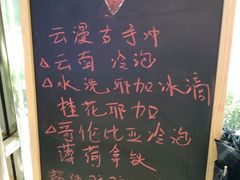 云漫古手冲
△云南 冷泡
△水洗耶加冰滴
桂花耶加
△哥伦比亚冷泡
薄荷拿铁